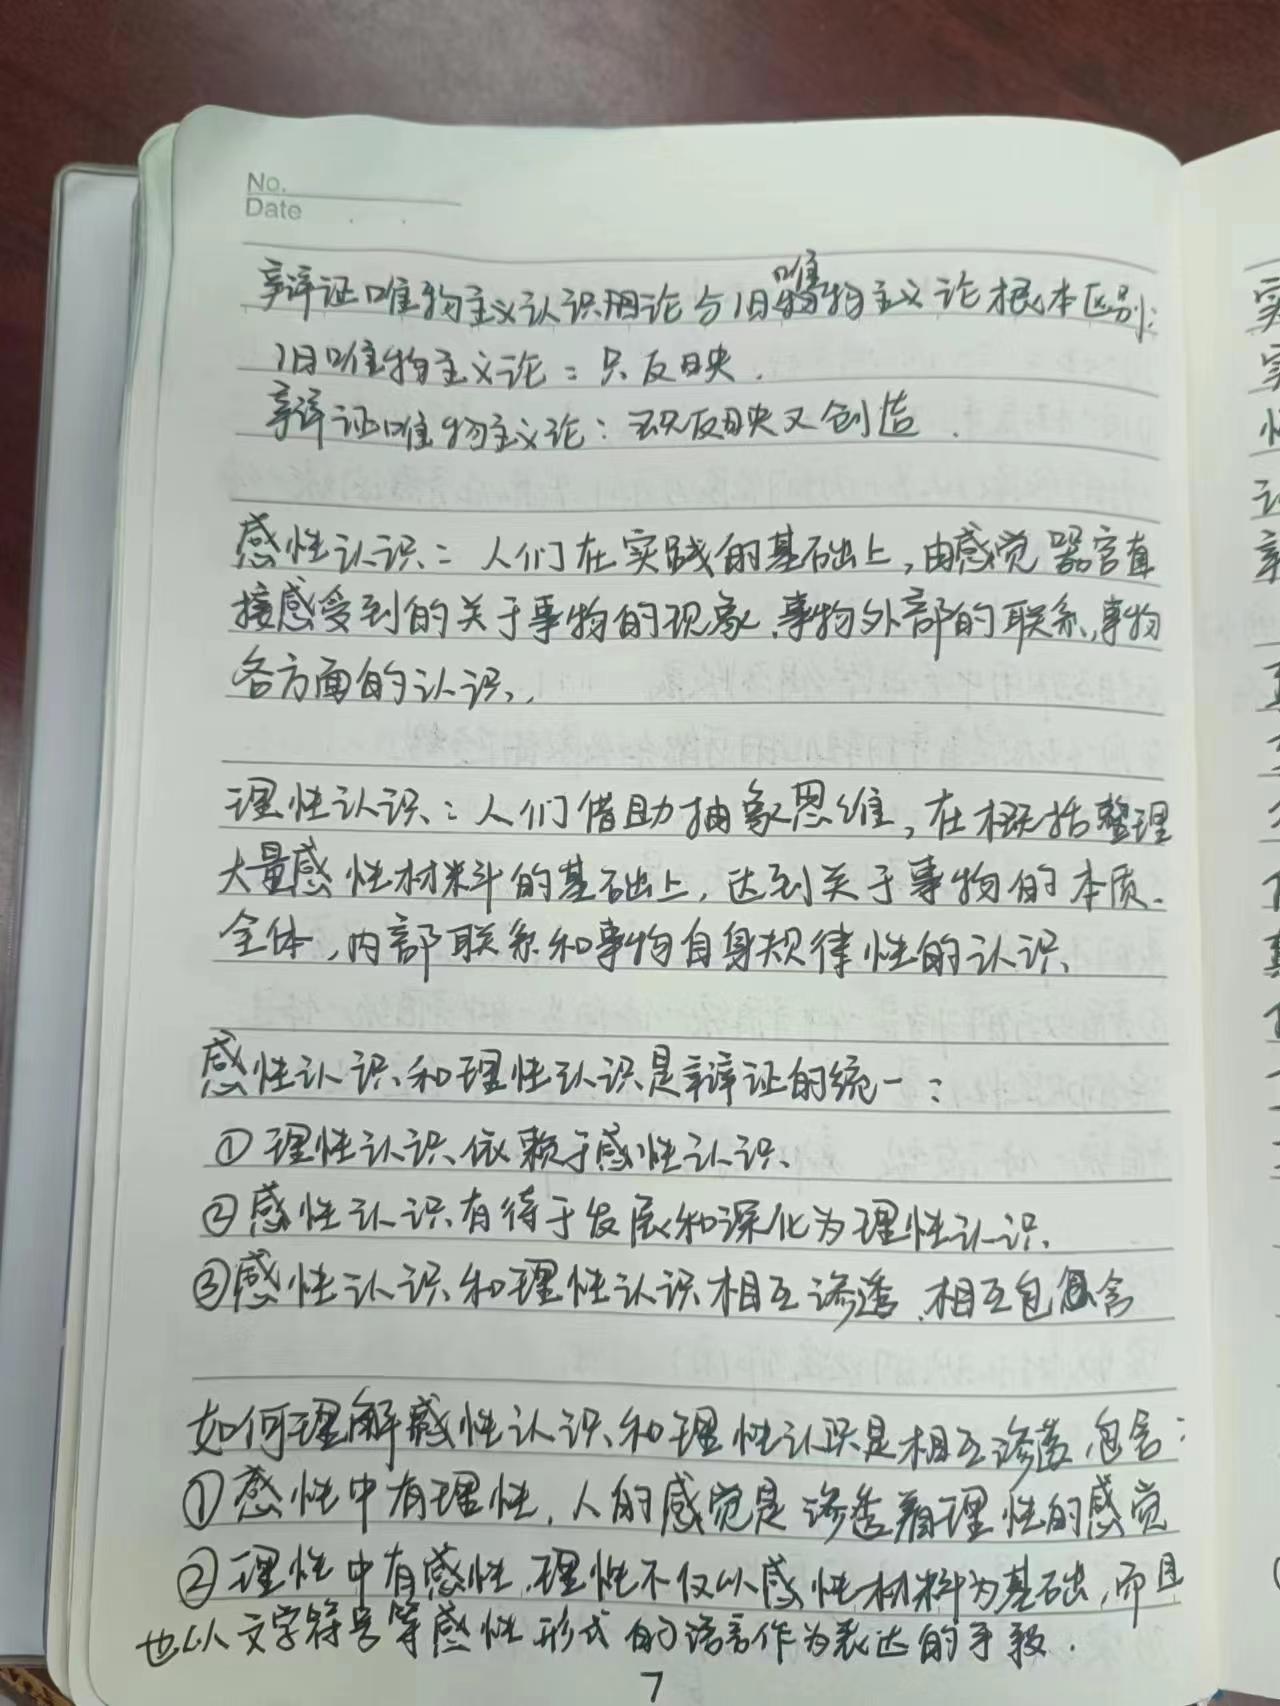 No.
Date
辩证唯物主义认识论与旧唯物主义论根本区别:
旧唯物主义论:只反映.
辩证唯物主义论:既反映又创造.
感性认识:人们在实践的基础上,由感觉器官直
接感受到的关于事物的现象、事物外部的联系、事物
各方面的认识.
理性认识:人们借助抽象思维,在概括整理
大量感性材料的基础上,达到关于事物的本质、
全体、内部联系和事物自身规律性的认识.
感性认识和理性认识是辩证的统一:
①理性认识依赖于感性认识.
②感性认识有待于发展和深化为理性认识.
③感性认识和理性认识相互渗透、相互包含
如何理解感性认识和理性认识是相互渗透、包含:
①感性中有理性,人的感觉是渗透着理性的感觉
②理性中有感性,理性不仅以感性材料为基础,而且
也以文字符号等感性形式的语言作为表达的手段.
7